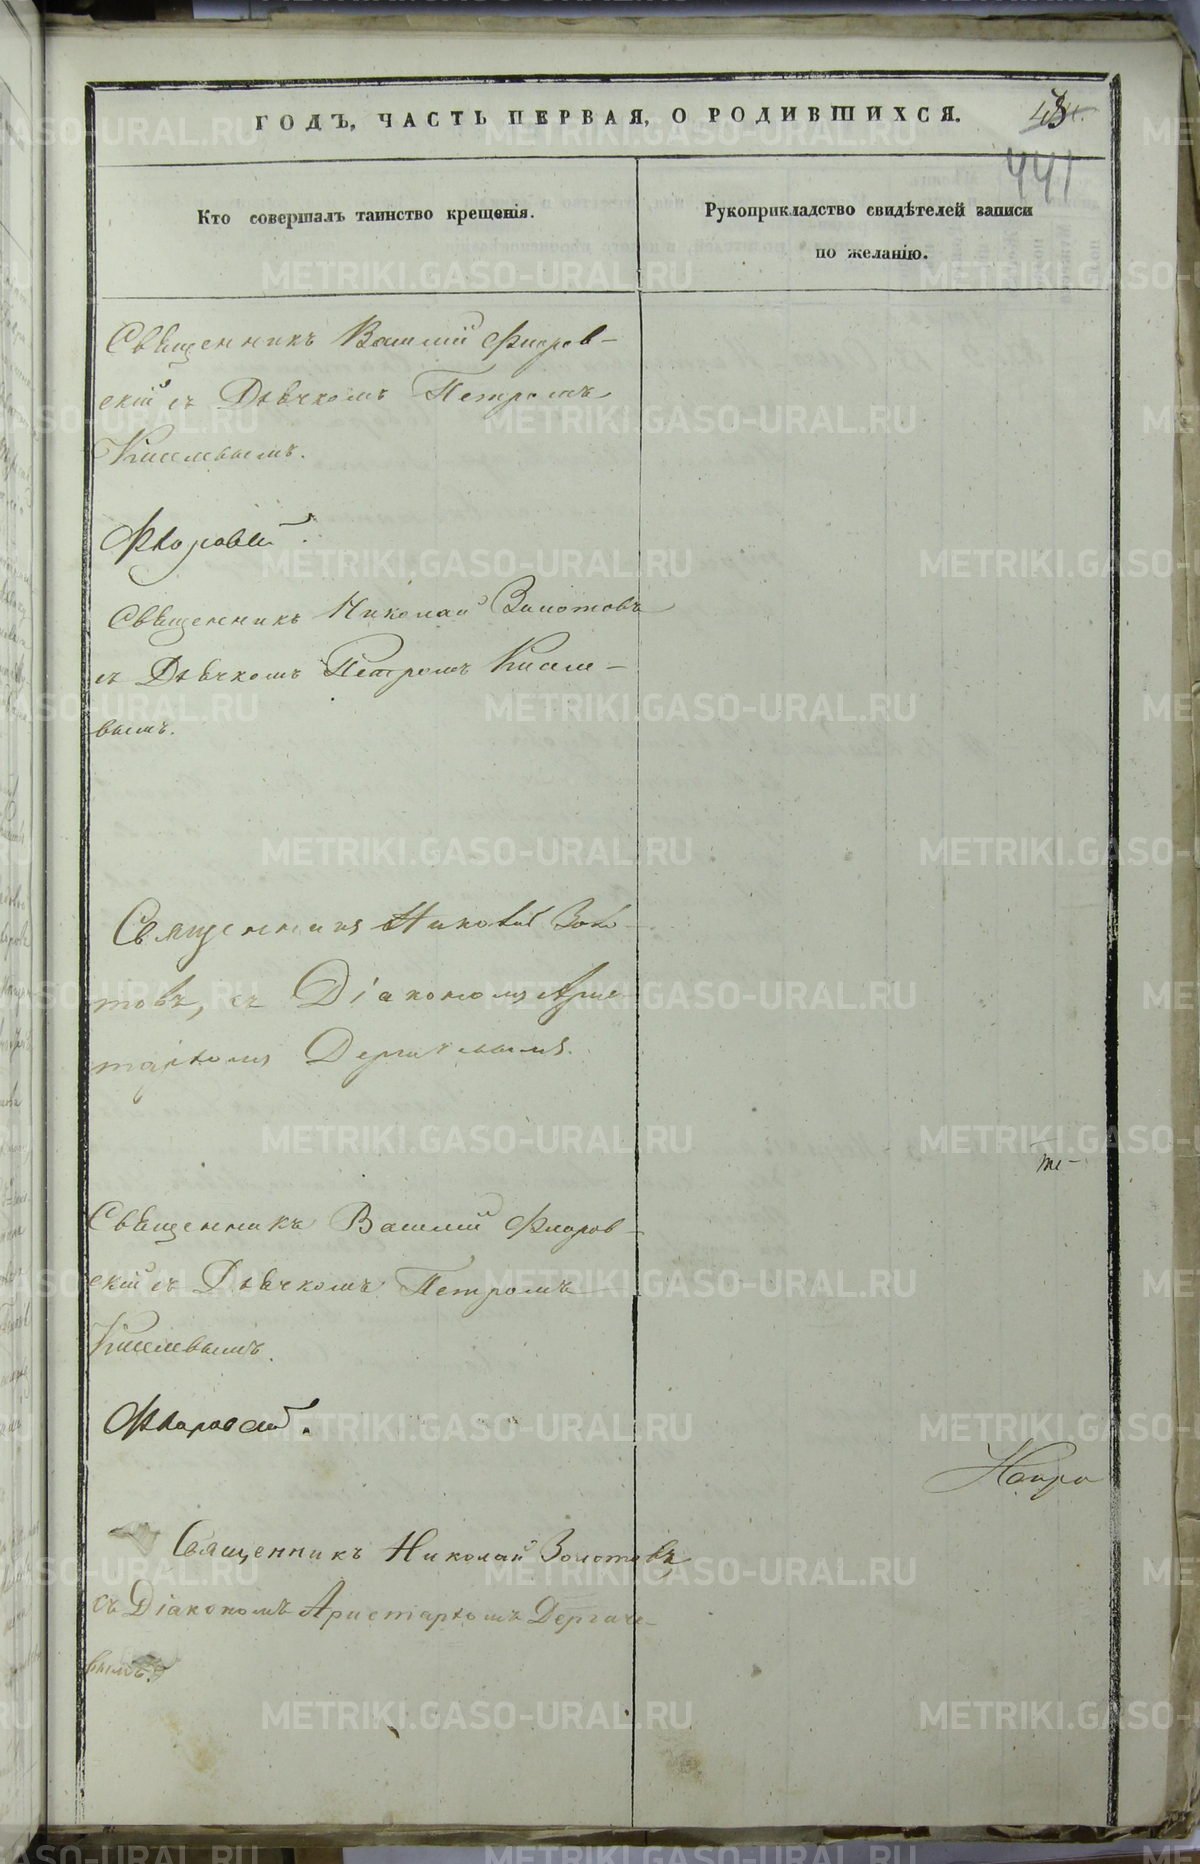 ГОДЪ, ЧАСТЬ ПЕРВАЯ, О РОДИВШИХСЯ.
441
Кто совершалъ таинство крещенія.
Рукоприкладство свидѣтелей записи
по желанію.
Священникъ Василій Флоров-
скій съ Дьячкомъ Петромъ
Киселевымъ.
Флоровскій.
Священникъ Николай Золотовъ
съ Дьячкомъ Петромъ Киселе-
вымъ.
Священникъ Николай Золо-
товъ, съ Діакономъ Арис-
тархомъ Дергачевымъ.
те-
Священникъ Василій Флоров-
скій съ Дьячкомъ Петромъ
Киселевымъ.
Флоровскій.
Священникъ Николай Золотовъ
съ Діакономъ Аристархомъ Дергаче-
вымъ.
METRIKI.GASO-URAL.RU